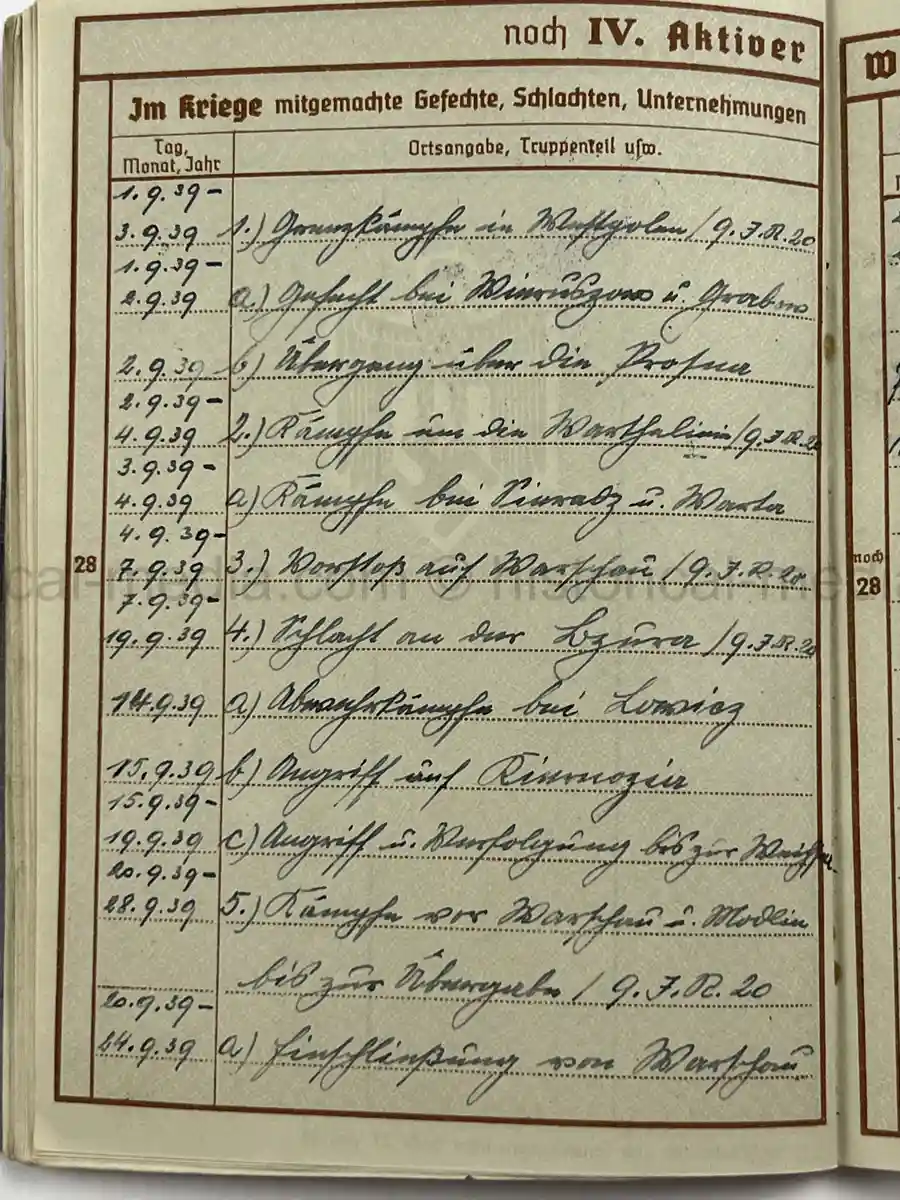 noch IV. Aktiver
Im Kriege mitgemachte Gefechte, Schlachten, Unternehmungen
Tag,
Monat, Jahr
Ortsangabe, Truppenteil usw.
1.9.39 –
3.9.39 1.) Grenzkämpfe in Westpolen / 9. J.R. 20
1.9.39 –
2.9.39 a.) Gefecht bei Wieruszow u. Grabow
2.9.39 b) Übergang über die Prosna
2.9.39 –
4.9.39 2.) Kämpfe um die Warthelinie / 9. J.R. 20
3.9.39 –
4.9.39 a) Kämpfe bei Sieradz u. Warta
4.9.39 –
28 7.9.39 3.) Vorstoß auf Warschau / 9. J.R. 20
7.9.39 –
19.9.39 4.) Schlacht an der Bzura / 9. J.R. 20
14.9.39 a) Abwehrkämpfe bei Lowicz
15.9.39 b) Angriff auf Kiernozia
15.9.39 –
19.9.39 c) Angriff u. Verfolgung bis zur Weichsel
20.9.39 –
28.9.39 5.) Kämpfe vor Warschau u. Modlin
bis zur Übergabe / 9. J.R. 20
20.9.39 –
24.9.39 a) Einschließung von Warschau
W
noch
28